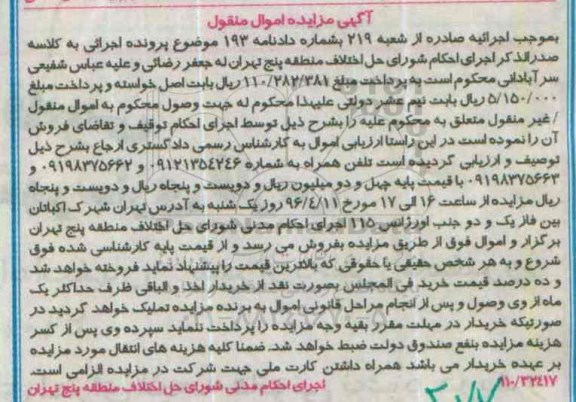 آگهی مزایده اموال منقول
بموجب اجرائیه صادره از شعبه ۲۱۹ بشماره دادنامه ۱۹۳ موضوع پرونده اجرائی به کلاسه
صدرالذکر اجرای احکام شورای حل اختلاف منطقه پنج تهران له جعفر رضائی و علیه عباس شفیعی
سرآبادانی محکوم است به پرداخت مبلغ ۱۱۰/۲۸۲/۳۸۱ ریال بابت اصل خواسته و پرداخت مبلغ
۵/۱۵۰/۰۰۰ ریال بابت نیم عشر دولتی علیهذا محکوم له جهت وصول محکوم به اموال منقول
/ غیر منقول متعلق به محکوم علیه را بشرح ذیل توسط اجرای احکام توقیف و تقاضای فروش
آن را نموده است در این راستا ارزیابی اموال به کارشناس رسمی دادگستری ارجاع بشرح ذیل
توصیف و ارزیابی گردیده است تلفن همراه به شماره ۰۹۱۲۱۳۵۴۲۴۶ و ۰۹۱۹۸۳۷۵۶۶۲ و
۰۹۱۹۸۳۷۵۶۶۳ با قیمت پایه چهل و دو میلیون ریال و دویست و پنجاه ریال و دویست و پنجاه
ریال مزایده از ساعت ۱۶ الی ۱۷ مورخ ۹۶/۴/۱۱ روز یک شنبه به آدرس تهران شهرک اکباتان
بین فاز یک و دو جنب اورژانس ۱۱۵ اجرای احکام مدنی شورای حل اختلاف منطقه پنج تهران
برگزار و اموال فوق از طریق مزایده بفروش می رسد و از قیمت پایه کارشناسی شده فوق
شروع و به هر شخص حقیقی یا حقوقی که بالاترین قیمت را پیشنهاد نماید فروخته خواهد شد
و ده درصد قیمت خرید فی المجلس بصورت نقد از خریدار اخذ و الباقی ظرف حداکثر یک
ماه از وی وصول و پس از انجام مراحل قانونی اموال به برنده مزایده تملیک خواهد گردید در
صورتیکه خریدار در مهلت مقرر بقیه وجه مزایده را پرداخت ننماید سپرده وی پس از کسر
هزینه مزایده بنفع صندوق دولت ضبط خواهد شد. ضمنا کلیه هزینه های انتقال مورد مزایده
بر عهده خریدار می باشد همراه داشتن کارت ملی جهت شرکت در مزایده الزامی است.
۱۱۰/۳۲۴۱۷ اجرای احکام مدنی شورای حل اختلاف منطقه پنج تهران